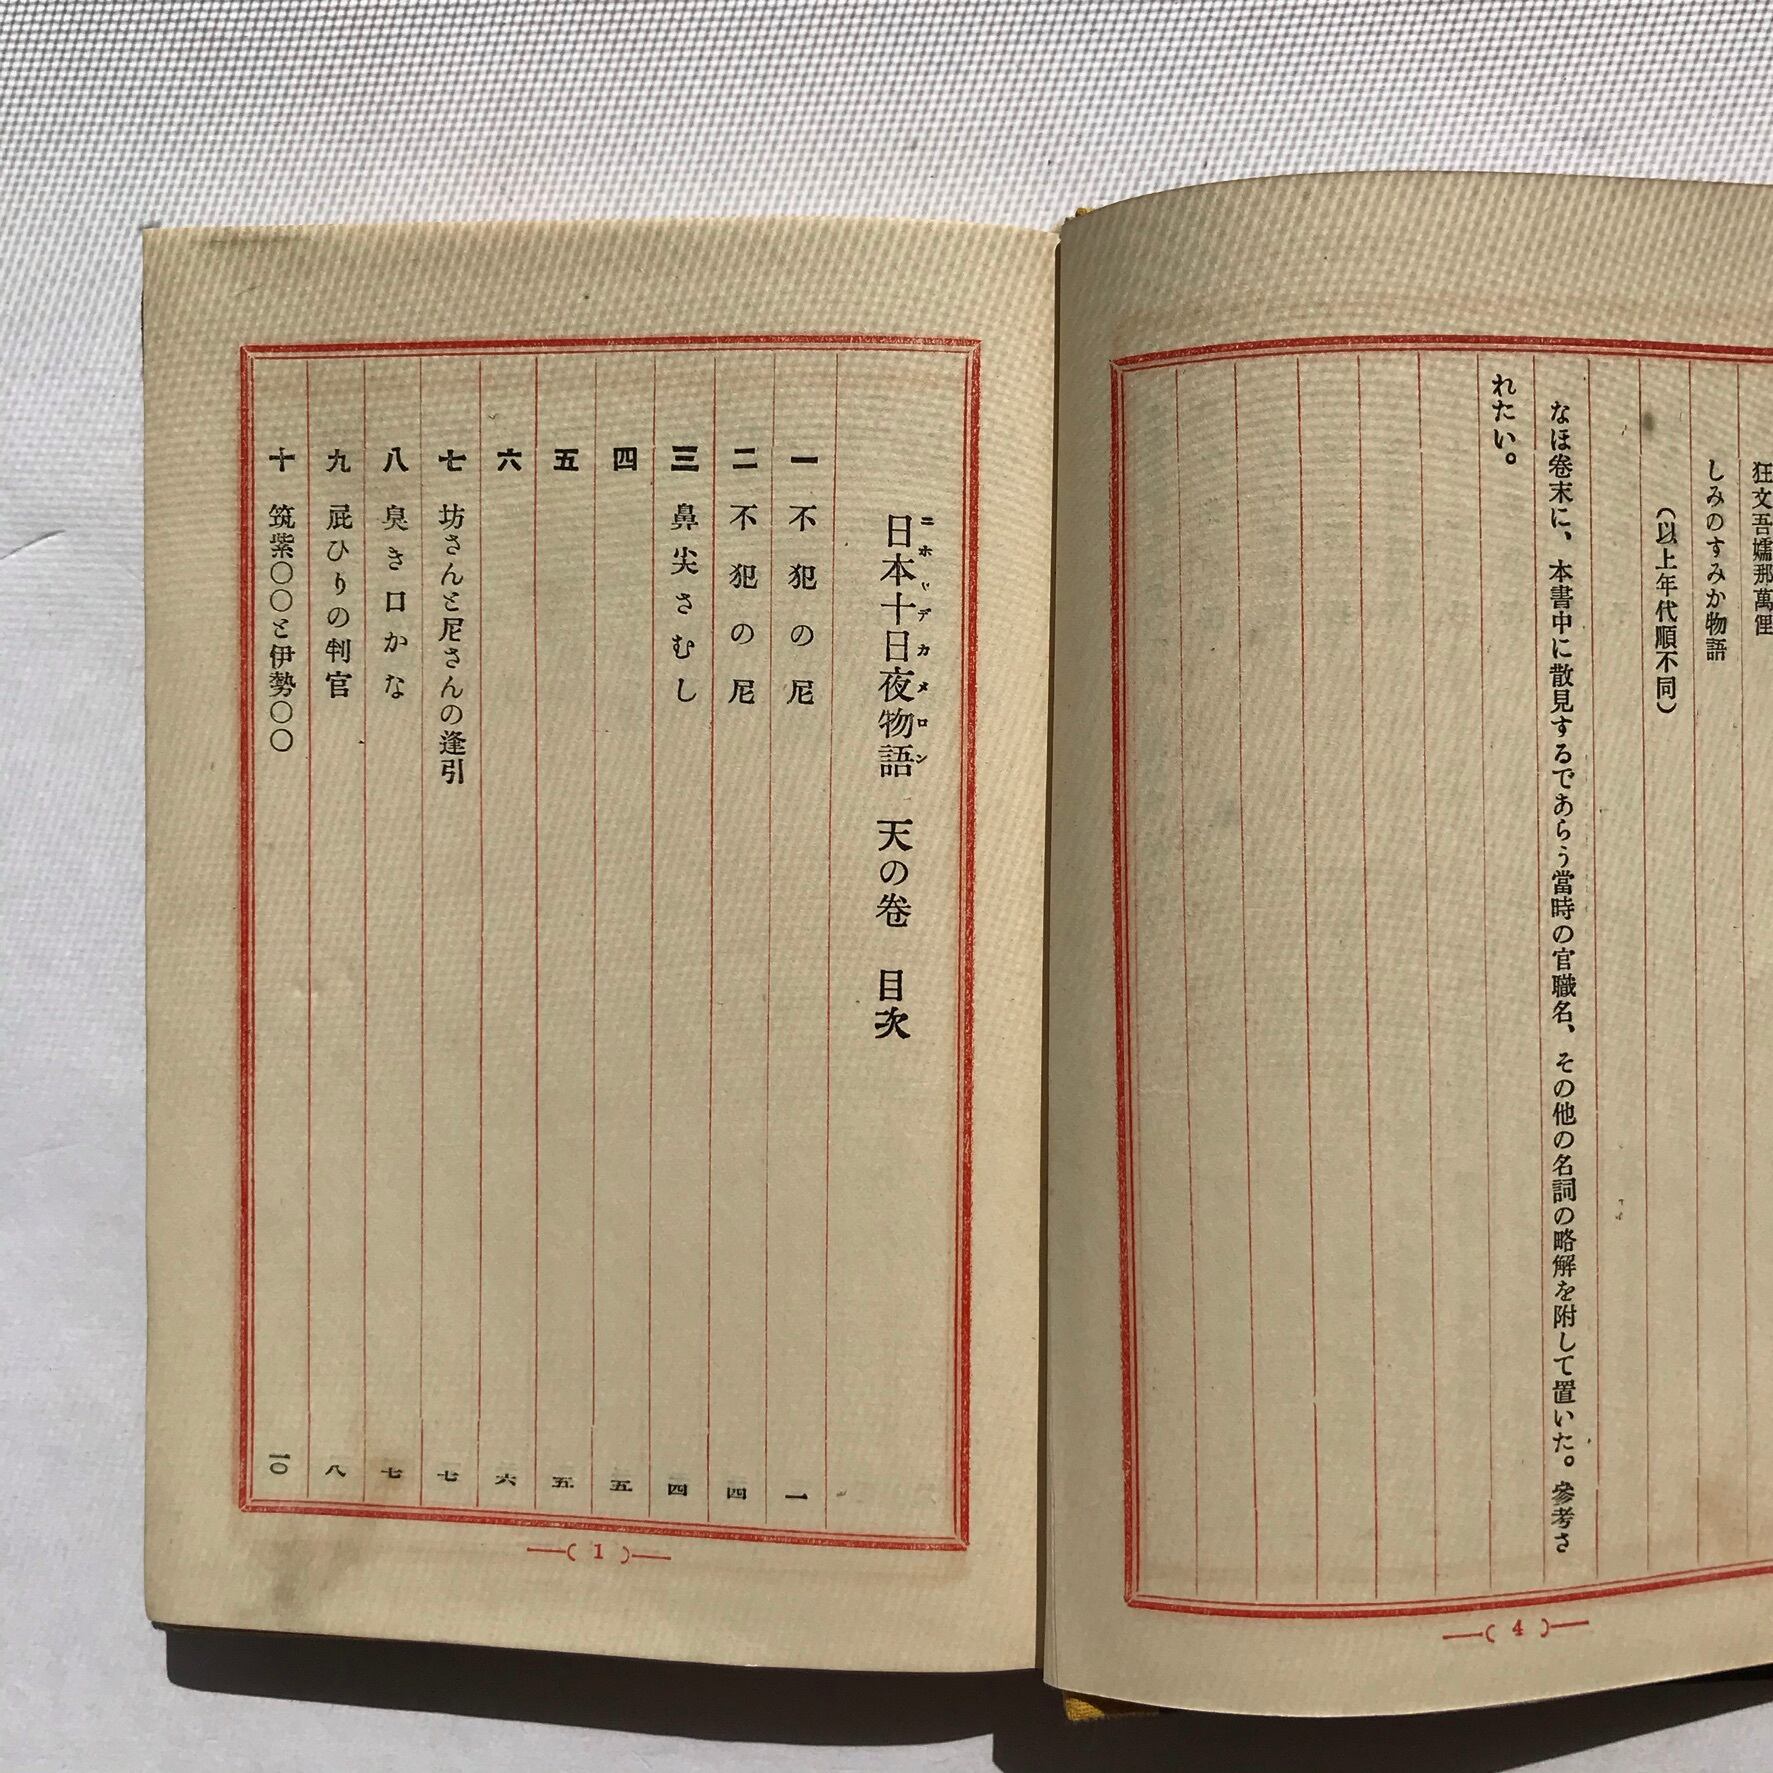 狂文吾嬬那萬俚
しみのすみか物語
（以上年代順不同）
なほ卷末に、本書中に散見するであらう當時の官職名、その他の名詞の略解を附して置いた。參考さ
れたい。
4
日本十日夜物語 天の卷 目次
ニホンデカメロン
一 不犯の尼 一
二 不犯の尼 四
三 鼻尖さむし 四
四 五
五 五
六 六
七 坊さんと尼さんの逢引 七
八 臭き口かな 七
九 屁ひりの判官 八
十 筑紫〇〇と伊勢〇〇 一〇
1